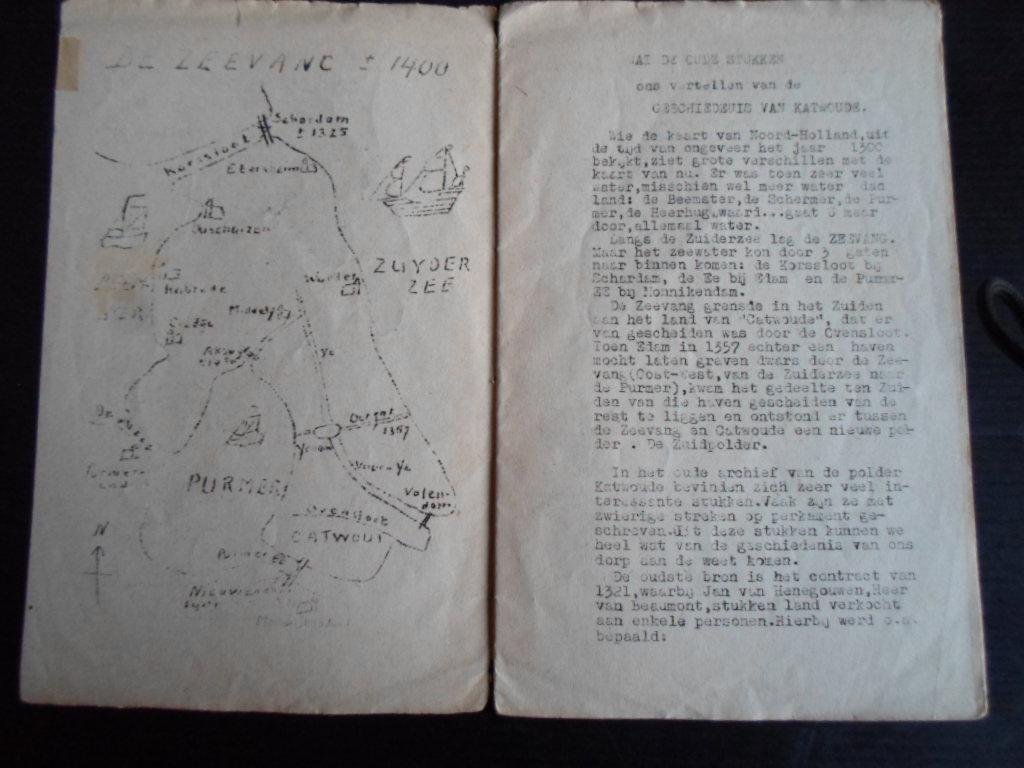 DE ZEEVANC ± 1400
Schardam
± 1325
Korssloot
Etersheim
ZUYDER
ZEE
Ye
1357
Volen-
dam
PURMER
CATWOU
N
DE OUDE STUKKEN
ons vertellen van de
GESCHIEDENIS VAN KATWOUDE.
Wie de kaart van Noord-Holland,uit
de tijd van ongeveer het jaar 1300
bekijkt,ziet grote verschillen met de
kaart van nu. Er was toen zeer veel
water,misschien wel meer water dan
land: de Beemster,de Schermer,de Pur-
mer,de Heerhugowaard...gaat U maar
door,allemaal water.
Langs de Zuiderzee lag de ZEEVANG.
Maar het zeewater kon door 3 gaten
naar binnen komen: de Korssloot bij
Schardam, de Ee bij Edam en de Purmer-
EE bij Monnikendam.
De Zeevang grensde in het Zuiden
aan het land van "Catwoude", dat er
van gescheiden was door de Ovensloot.
Toen Edam in 1357 echter een haven
mocht laten graven dwars door de Zee-
vang(Oost-West,van de Zuiderzee naar
de Purmer),kwam het gedeelte ten Zui-
den van die haven gescheiden van de
rest te liggen en ontstond er tussen
de Zeevang en Catwoude een nieuwe pol-
der . De Zuidpolder.
In het oude archief van de polder
Katwoude bevinden zich zeer veel in-
teressante stukken.Vaak zijn ze met
zwierige streken op perkament ge-
schreven.Uit deze stukken kunnen we
heel wat van de geschiedenis van ons
dorp aan de weet komen.
De oudste bron is het contract van
1321,waarbij Jan van Henegouwen,Heer
van Beaumont,stukken land verkocht
aan enkele personen.Hierbij werd o.a.
bepaald: